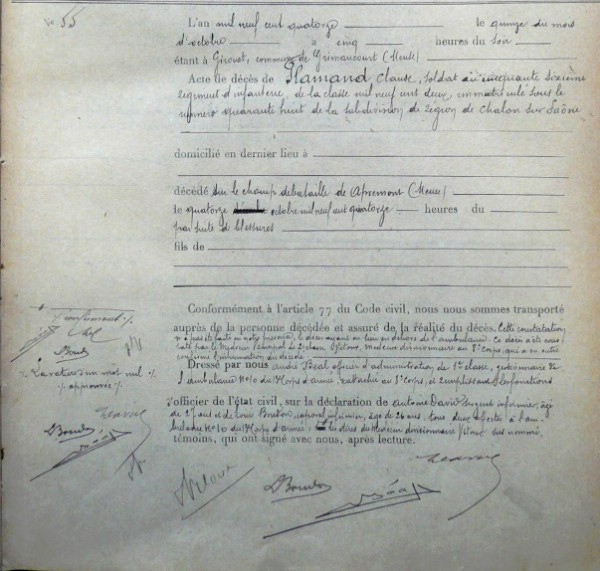 No 55
L'an mil neuf cent quatorze le quinze du mois
d'octobre à cinq heures du soir
étant à Girouet, commune de Grimaucourt (Meuse)
Acte de décès de Flamand Claude, soldat au cinquante sixième
régiment d'infanterie, de la classe mil neuf cent deux, immatriculé sous le
numéro quarante huit de la subdivision de région de Chalon sur Saône
domicilié en dernier lieu à
décédé sur le champ de bataille de Apremont (Meuse)
le quatorze octobre mil neuf cent quatorze heures du
par suite de blessures
fils de
Conformément à l'article 77 du Code civil, nous nous sommes transporté
auprès de la personne décédée et assuré de la réalité du décès. Cette constatation
n'a pas été faite en notre présence, le décès ayant eu lieu en dehors de l'ambulance.
confirmé l'inhumation du décédé
Dressé par nous André Béal officier d'administration de 1e classe, gestionnaire de
l'ambulance No 10 du corps d'armée, rattachée au corps, et remplissant les fonctions
d'officier de l'état civil, sur la déclaration de Antoine David sergent infirmier, âgé
de ans et de Louis Breton caporal infirmier, âgé de 26 ans, tous deux affectés à l'am-
bulance No 10 du corps d'armée
témoins, qui ont signé avec nous, après lecture.
Rature un mot nul
approuvée